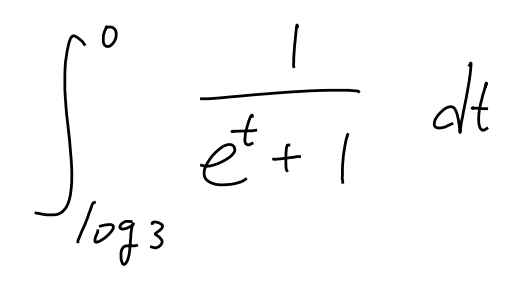 $\int_{\log 3}^{0} \frac{1}{e^t + 1} dt$